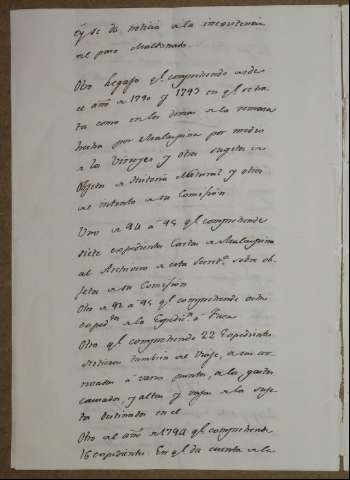 q.e se dá noticia de la inexistencia
del paso Maldonado.
Otro legajo q.e comprehende desde
el año de 1790 y 1793 en q.e se tra
ta como en los demas de la remesa
hecha por Malaspina por medio
de los Virreyes y otros sugetos de
Objetos de Historia Natural y otros
al intento de su Comision
Uno de 94 á 95 q.e comprehende
siete expedientes Cartas de Malaspina
al Archivero de esta Secret.a sobre ob
jetos de su Comision
Otro de 92 á 95 q.e comprehende ocho
exped.tes de la Expedic.n á Fuca
Otro q.e comprehende 22 Expedientes
relativos tambien al Viaje, de sus ar
rivadas á varios puntos, de los gastos
causados, y altas y vajas de los suge
tos destinados en el
Otro del año de 1794 q.e comprehende
16 expedientes. En q.e da cuenta de la